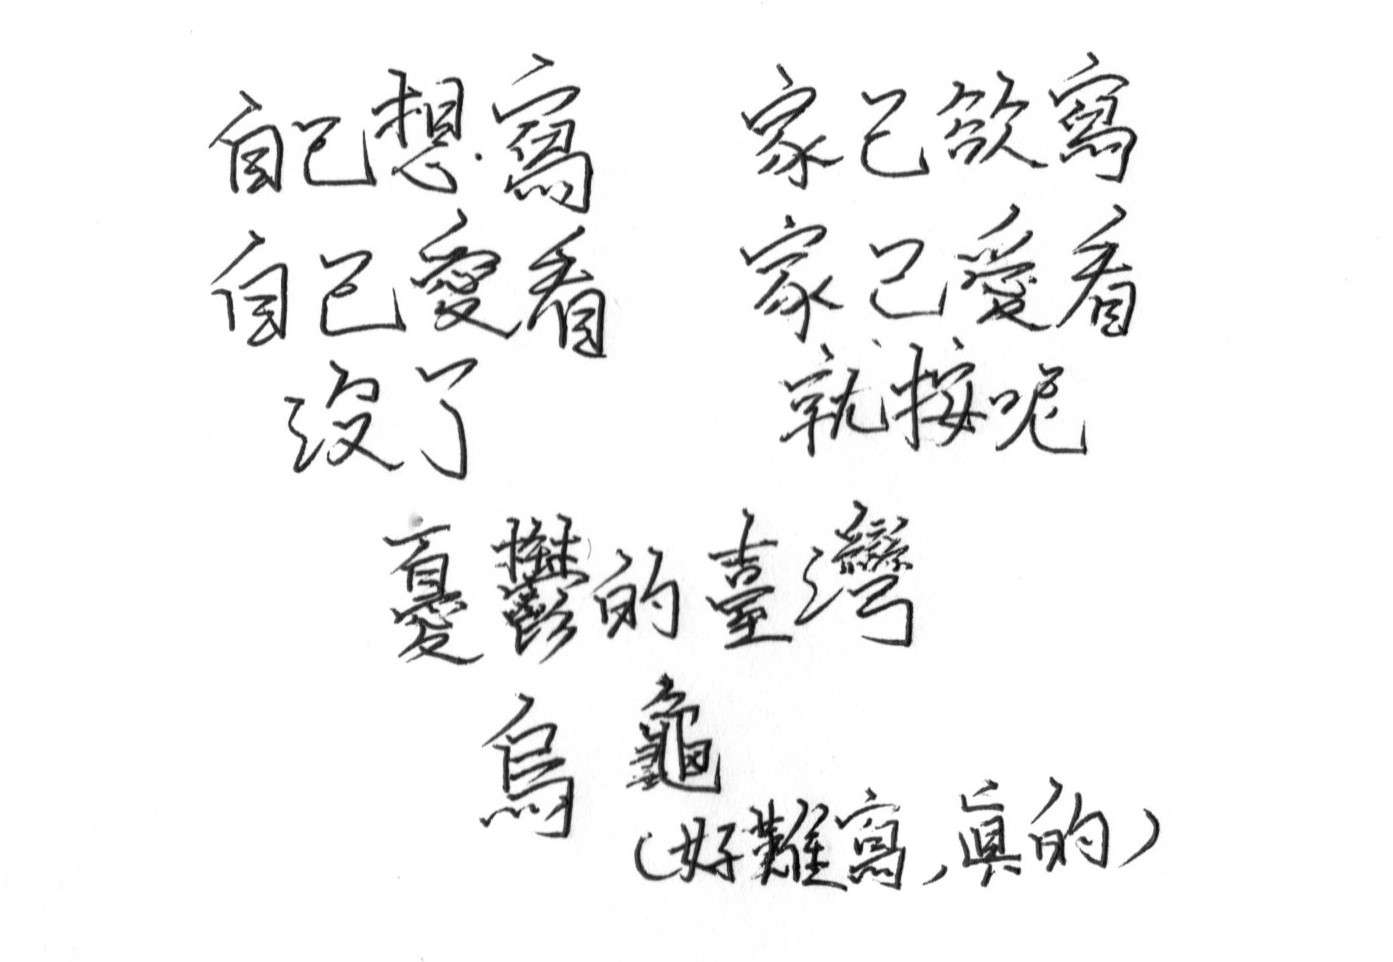 自己想寫
自己愛看
沒了
家己欲寫
家己愛看
就按呢
憂鬱的臺灣
烏龜
(好難寫,真的)